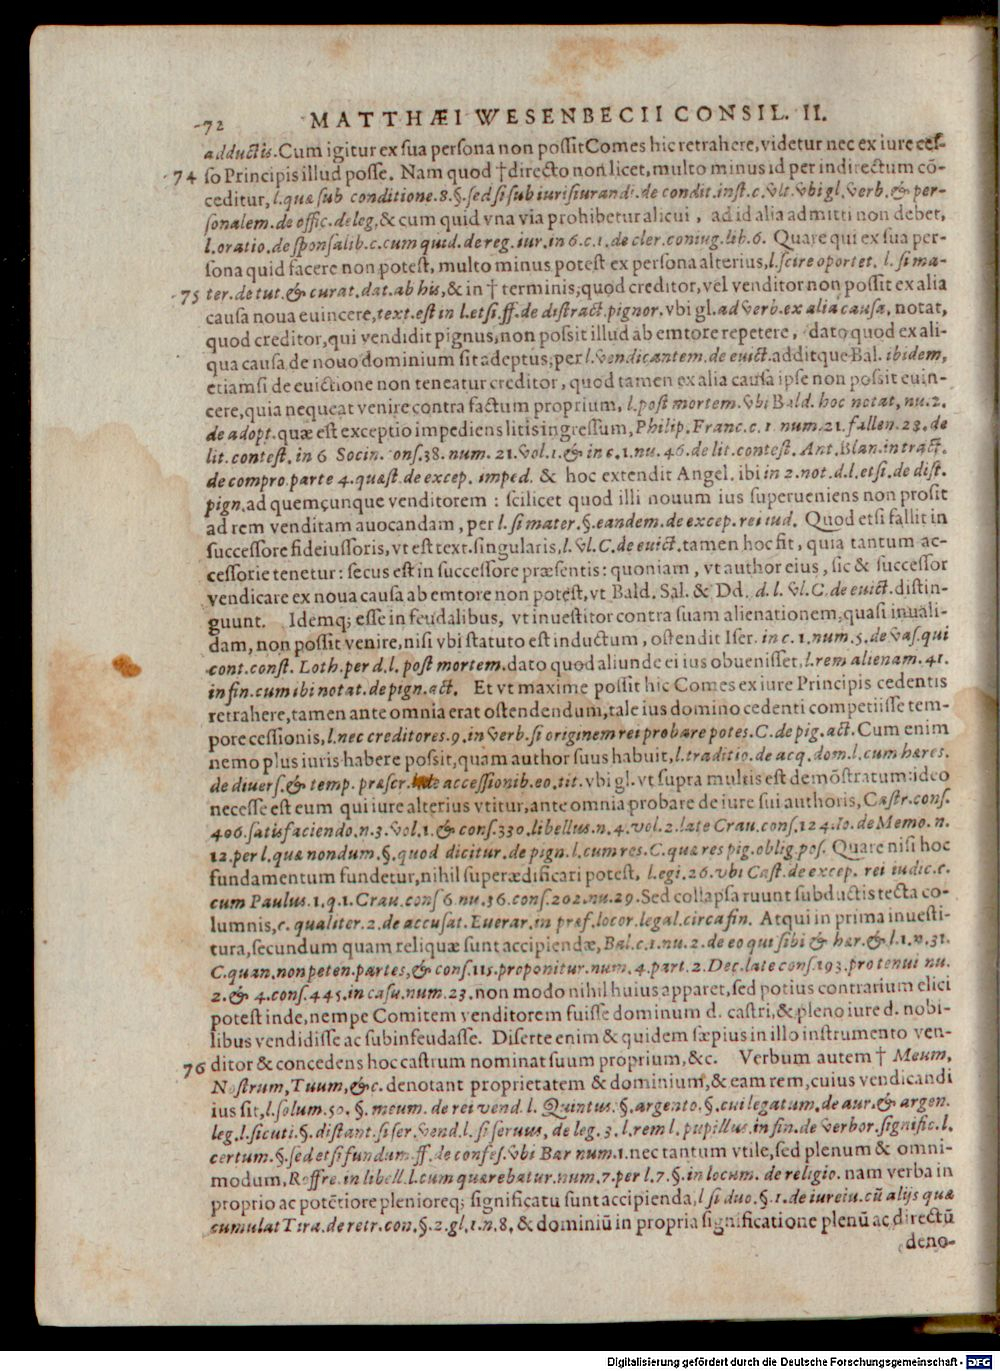 72 MATTHÆI WESENBECII CONSIL. II.
adductis. Cum igitur ex sua persona non possit Comes hic retrahere, videtur nec ex iure cef-
74 so Principis illud posse. Nam quod † directo non licet, multo minus id per indirectum cō-
ceditur, l. quæ sub conditione. 8. §. sed si sub iurisiurandi. de condit. inst. c. vlt. vbi gl. verb. & per-
sonalem. de offic. deleg, & cum quid vna via prohibetur alicui, ad id alia admitti non debet,
l. oratio. de sponsalib. c. cum quid. de reg. iur. in 6. c. 1. de cler. coniug. lib. 6. Quare qui ex sua per-
sona quid facere non potest, multo minus potest ex persona alterius, l. scire oportet. l. si ma-
75 ter. de tut. & curat. dat. ab his, & in † terminis, quod creditor, vel venditor non possit ex alia
causa noua euincere, text. est in l. etsi. ff. de distract. pignor. vbi gl. ad verb. ex alia causa, notat,
quod creditor, qui vendidit pignus, non possit illud ab emtore repetere, dato quod ex ali-
qua causa de nouo dominium sit adeptus, per l. vendicantem. de euict. additque Bal. ibidem,
etiamsi de euictione non teneatur creditor, quod tamen ex alia causa ipse non possit euin-
cere, quia nequeat venire contra factum proprium, l. post mortem. vbi Bald. hoc notat, nu. 2.
de adopt. quæ est exceptio impediens litis ingressum, Philip. Franc. c. 1. num. 21. fallen. 23. de
lit. contest. in 6 Socin. ons. 38. num. 21. vol. 1. & in c. 1. nu. 46. de lit. contest. Ant. Blan. in tract.
de compro. parte 4. quæst. de excep. imped. & hoc extendit Angel. ibi in 2. not. d. l. etsi. de dist.
pign. ad quemcunque venditorem: scilicet quod illi nouum ius superueniens non prosit
ad rem venditam auocandam, per l. si mater. §. eandem. de excep. rei iud. Quod etsi fallit in
successore fideiussoris, vt est text. singularis, l. vl. C. de euict. tamen hoc fit, quia tantum ac-
cessorie tenetur: secus est in successore præsentis: quoniam, vt author eius, sic & successor
vendicare ex noua causa ab emtore non potest, vt Bald. Sal. & Dd. d. l. vl. C. de euict. distin-
guunt. Idemq; esse in feudalibus, vt inuestitor contra suam alienationem, quasi inuali-
dam, non possit venire, nisi vbi statuto est inductum, ostendit Iser. in c. 1. num. 5. de vas. qui
cont. const. Loth. per d. l. post mortem. dato quod aliunde ei ius obuenisset, l. rem alienam. 41.
in fin. cum ibi notat. de pign. act. Et vt maxime possit hic Comes ex iure Principis cedentis
retrahere, tamen ante omnia erat ostendendum, tale ius domino cedenti competiisse tem-
pore cessionis, l. nec creditores. 9. in verb. si originem rei probare potes. C. de pig. act. Cum enim
nemo plus iuris habere possit, quam author suus habuit, l. traditio. de acq. dom. l. cum hæres.
de diuers. & temp. præscr. accessionib. eo. tit. vbi gl. vt supra multis est demōstratum: ideo
necesse est eum qui iure alterius vtitur, ante omnia probare de iure sui authoris, Castr. cons.
406. satisfaciendo. n. 3. vol. 1. & cons. 330. libellus. n. 4. vol. 2. late Crau. cons. 124. Io. de Memo. n.
12. per l. quæ nondum. §. quod dicitur. de pign. l. cum res. C. quæ res pig. oblig. pos. Quare nisi hoc
fundamentum fundetur, nihil superædificari potest, l. egi. 26. vbi Cast. de excep. rei iudic. c.
cum Paulus. 1. q. 1. Crau. cons 6. nu. 36. cons. 202. nu. 29. Sed collapsa ruunt subductis tecta co-
lumnis, c. qualiter. 2. de accusat. Euerar. in præf. locor. legal. circa fin. Atqui in prima inuesti-
tura, secundum quam reliquæ sunt accipiendæ, Bal. c. 1. nu. 2. de eo qui sibi & hær. & l. 1. n. 31.
C. quan. non peten. partes, & cons. 115. proponitur. num. 4. part. 2. Dec. late cons. 193. pro tenui nu.
2. & 4. cons. 445. in casu. num. 23. non modo nihil huius apparet, sed potius contrarium elici
potest inde, nempe Comitem venditorem fuisse dominum d. castri, & pleno iure d. nobi-
libus vendidisse ac subinfeudasse. Diserte enim & quidem sæpius in illo instrumento ven-
76 ditor & concedens hoc castrum nominat suum proprium, &c. Verbum autem † Meum,
Nostrum, Tuum, &c. denotant proprietatem & dominium, & eam rem, cuius vendicandi
ius sit, l. solum. 50. §. meum. de rei vend. l. Quintus. §. argento. §. cui legatum. de aur. & argen.
leg. l. sicuti. §. distant. si ser. vend. l. si seruus, de leg. 3. l. rem l. pupillus. in fin. de verbor. signific. l.
certum. §. sed et si fundum. ff. de confes. vbi Bar num. 1. nec tantum vtile, sed plenum & omni-
modum, Roffre. in libell. l. cum quærebatur. num. 7. per l. 7. §. in locum. de religio. nam verba in
proprio ac potētiore plenioreq; significatu sunt accipienda, l si duo. §. 1. de iureiu. cū alijs quæ
cumulat Tira. de retr. con. §. 2. gl. 1. n. 8, & dominiū in propria significatione plenū ac directū
deno-
Digitalisierung gefördert durch die Deutsche Forschungsgemeinschaft - DFG